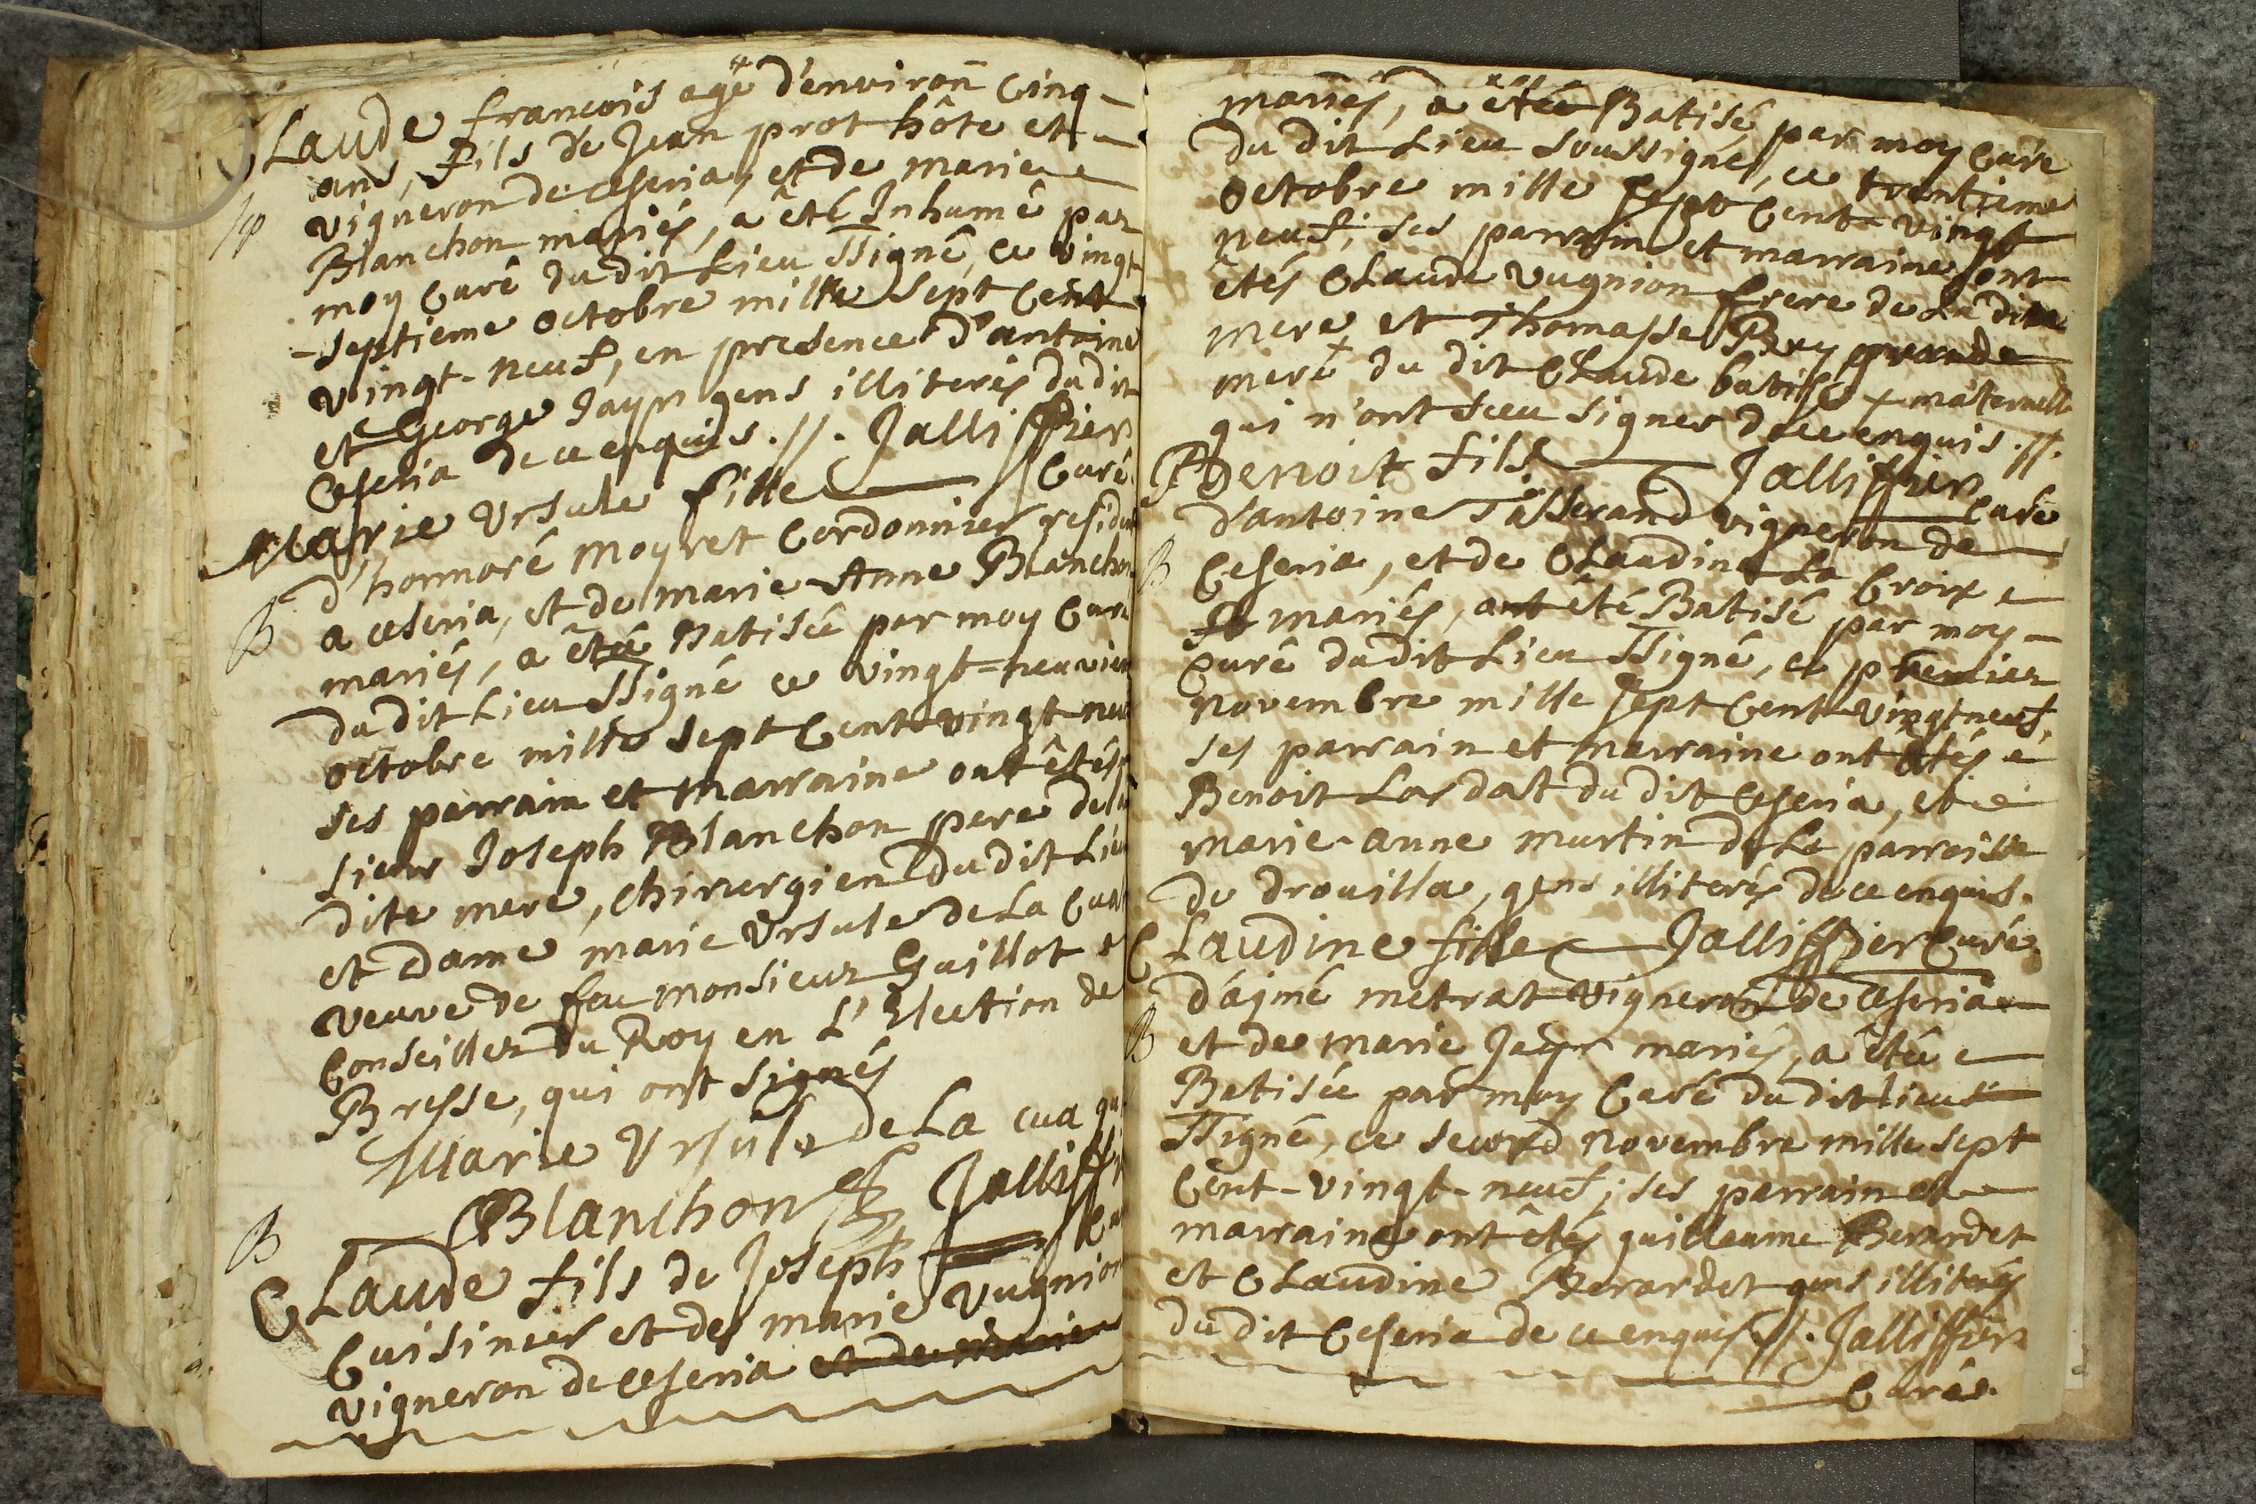 CLaude francois agé d'environ Cinq-
ans, fils de Jean prot hôte et-
vigneron de ceseria, et de marie
Blanchon mariés, a êté Inhumé par
moy Curé du dit Lieu ssigné, ce vingt
-septieme octobre mille sept Cent
vingt-neuf, en presence d'antoine
et George Jayr gens illiterés du dit
Ceseria de ce enquis.//. Jalliffier
Curé
Marie Ursule fille
B d'honnoré Moyret Cordonnier residant
a ceseria, et de marie-Anne Blanchon
mariés, a êtée Batisée par moy Curé
du dit Lieu ssigné ce vingt-neuvieme
octobre mille sept Cent vingt-neuf
ses parrain et marraine ont êtés
sieur Joseph Blanchon pere de la
dite mere, chirurgien du dit Lieu
et Dame marie Ursule de La Cua
veuve de feu monsieur Guillot
Conseiller du Roy en L'Election de
Bresse, qui ont signés
Marie Ursule de La cua
Blanchon Jalliffier
B
CLaude fils de Joseph
Cuisinier et de marie Vugnion
vigneron de ceseria et de marie
mariés, a êtée Batisé par moy Curé
du dit Lieu soussigné, ce trentieme
octobre mille sept Cent-vingt
neuf; ses parrain et marraine ont
êtés CLaude Vugnion frere de La dite
mere et Thomasse Rey grande
mere + du dit CLaude batisé + maternelle
qui n'ont sceu signer de ce enquis.//.
Benoit fils Jalliffier
Curé
d'antoine Tasserand vigneron de
B Ceseria, et de CLaudine La Croix
mariés, ant êté Batisé par moy-
Curé du dit Lieu ssigné, ce premier
novembre mille sept Cent-vingt neuf,
ses parrain et marraine ont êtés
Benoit Lardat du dit Ceseria, et
marie-anne murtin de La parroisse
de drouilla, gens illiterés de ce enquis.
CLaudine fille Jalliffier Curé
d'aymé metrat vigneron de Ceseria
B et de marie Jayr mariés, a êtée
Batisée par moy Curé du dit Lieu
ssigné, ce second novembre mille sept
Cent-vingt-neuf; ses parrain et
marraine ont êtés guilleaume Berardet
et CLaudine Berardet gens illiterés
du dit Ceseria de ce enquis.//. Jalliffier
Curé.